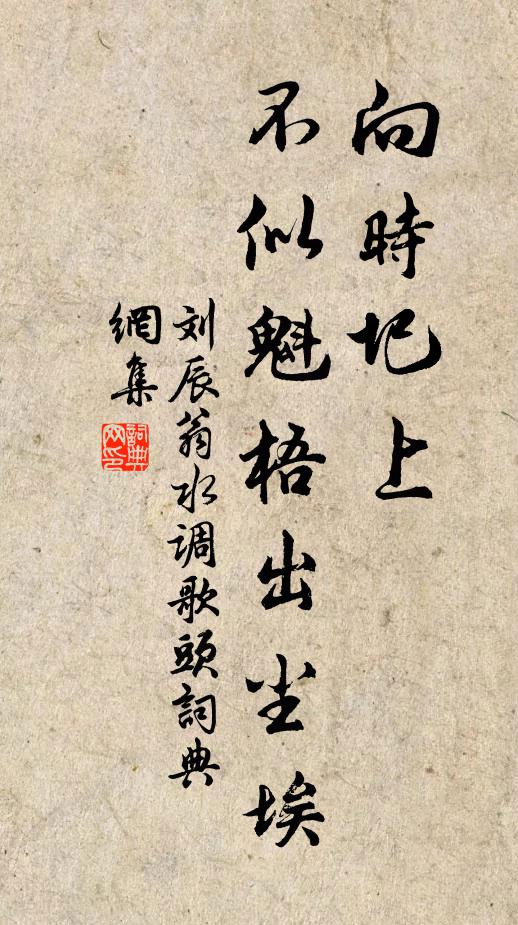 向時圯上
不似魁梧出尘埃
刘辰翁水调歌頭詞典
網集
詞典
网印